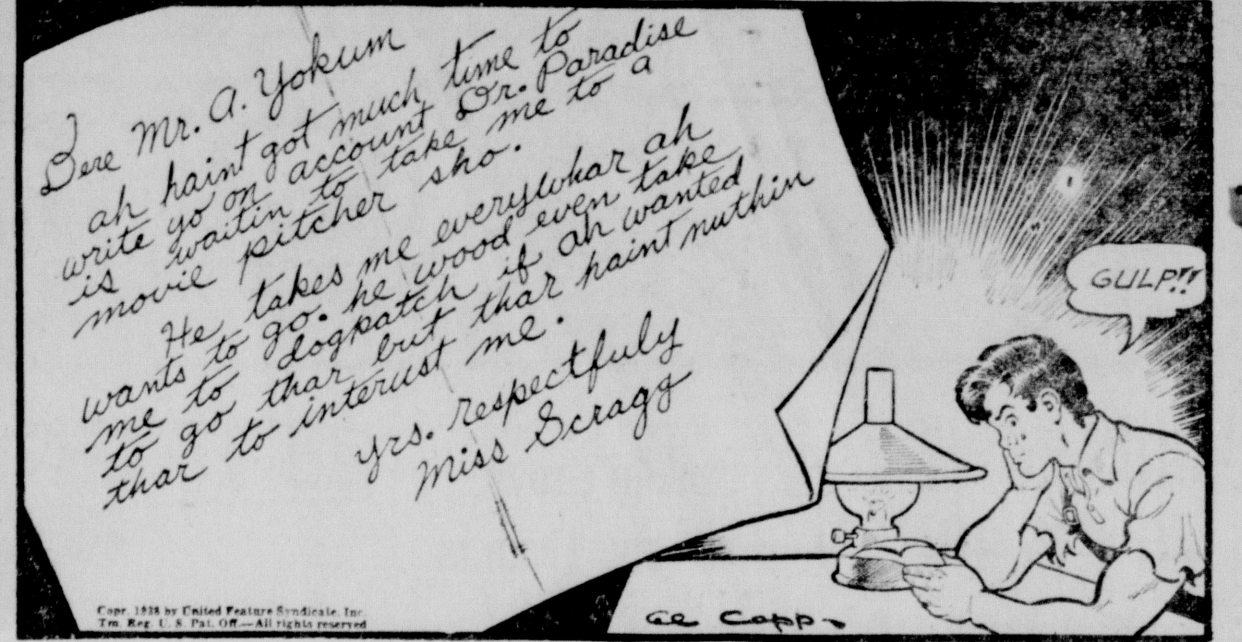 Dere Mr. A. Yokum
ah haint got much time to
write yo on account Dr. Paradise
is waitin to take me to a
movie pitcher sho.
He takes me everywhar ah
wants to go. he wood even take
me to dogpatch if ah wanted
to go thar but thar haint nuthin
thar to interust me.
yrs. respectfuly
Miss Scragg
GULP!!
Copr. 1938 by United Feature Syndicate, Inc.
Tm. Reg. U. S. Pat. Off.—All rights reserved
Al Capp.